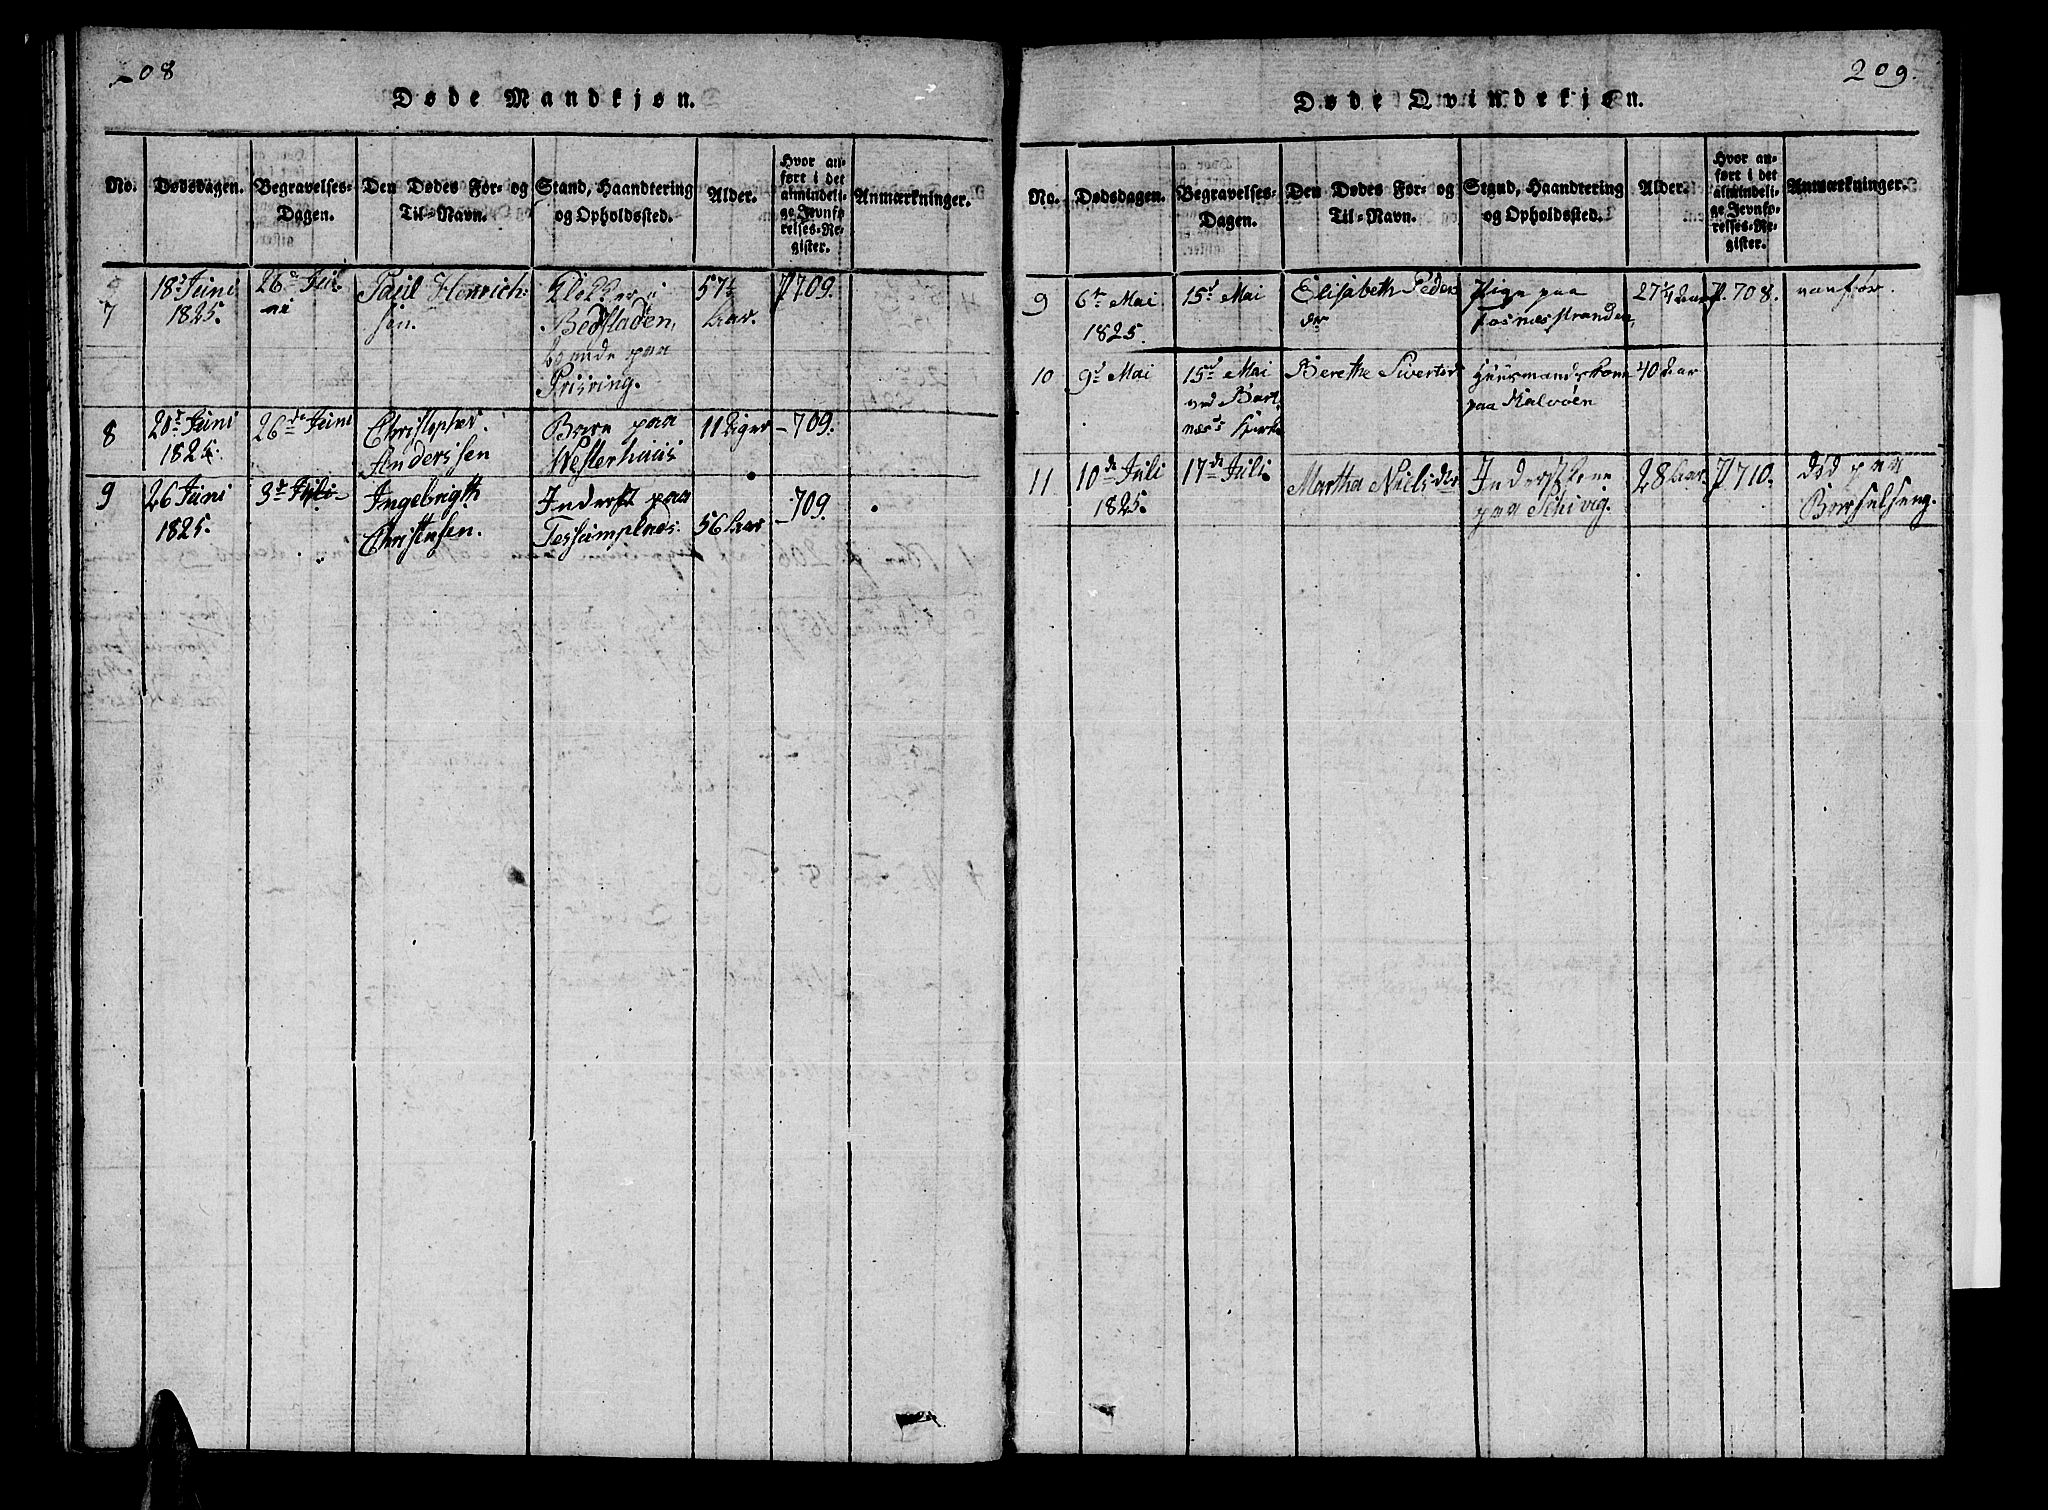 208
Døde Mandkjøn.
No.
Dødsdagen.
Begravelses-
Dagen.
Den Dødes For- og
Til-Navn.
Stand, Haandtering
og Opholdssted.
Alder.
Hvor an-
ført i det
almindeli-
ge Jevnfø-
relses-Re-
gister.
Anmærkninger.
7
18d Juni
1825.
26de Ju-
ni
Paul Henrich-
sen.
Klokker i
Bedstaden,
boende paa
57½
Aar.
P 709.
8
20d Juni
1825.
26de Juni
Christopher
Anderssen
Barn paa
Westerhuus
11 Uger
- 709.
9
26 Juni
1825.
3d Juli
Ingebrigth
Christensen.
Inderst paa
Tessumplads.
56 Aar
- 709.
209.
Døde Qvindekjøn.
No.
Dødsdagen.
Begravelses-
Dagen.
Den Dødes For- og
Til-Navn.
Stand, Haandtering
og Opholdssted.
Alder.
Hvor an-
ført i det
almindeli-
ge Jevnfø-
relses-Re-
gister.
Anmærkninger.
9
6te Mai
1825.
15d Mai
Elisabeth Peders
dr
Pige paa
Fosnæsstranden,
27½ Aar
P. 708.
vanfør.
10
9d Mai
15d Mai
ved
Kirke
Berethe Sivertsd
Huusmandskone
paa Kalvøen
40 Aar
11
10de Juli
1825.
17de Juli
Martha Nielsdr
Inderstkone
paa
28 Aar.
P 710.
død paa
Barselseng.